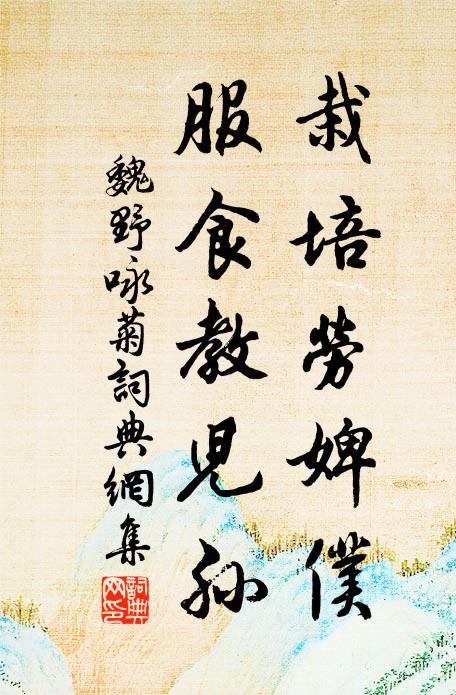 栽培勞婢僕
服食教兒孫
魏野咏菊詞典網集